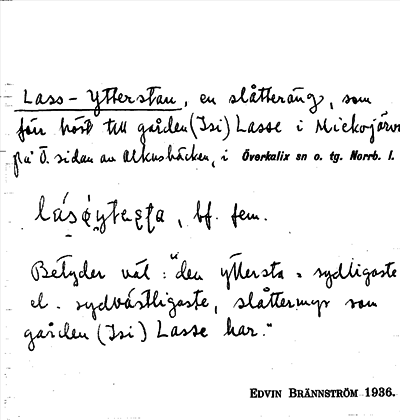 Lass-Ytterstan, en slåtteräng, som
förr hört till gården (Isi) Lasse i Mickojärv
på Ö. sidan av Alkusbäcken, i Överkalix sn o. tg. Norrb. l.
bf. fem.
Betyder väl: "den yttersta = sydligaste
el. sydvästligaste, slåttermyr som
gården (Isi) Lasse har."
EDVIN BRÄNNSTRÖM 1936.